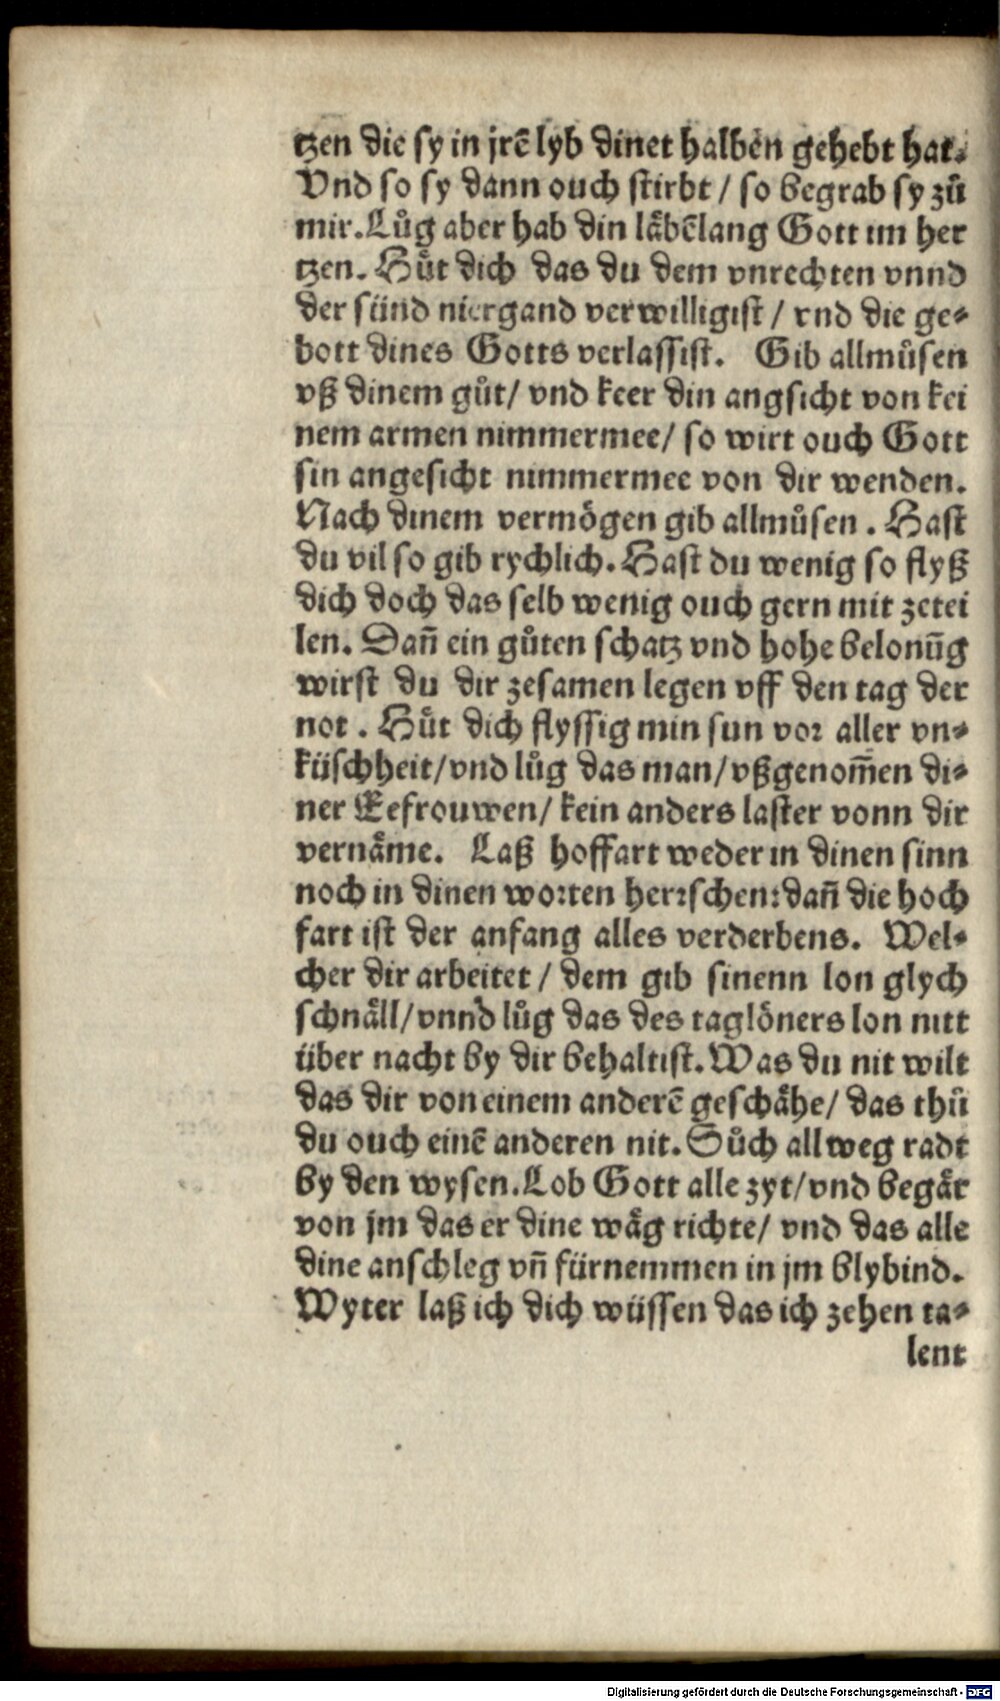 tzen die sy in jrẽ lyb dinet halben gehebt hat.
Vnd so sy dann ouch stirbt / so begrab sy zů
mir. Lůg aber hab din läbẽlang Gott im her
tzen. Hůt dich das du dem vnrechten vnnd
der sünd niergand verwilligist / vnd die ge⸗
bott dines Gotts verlassist. Gib allmůsen
vß dinem gůt / vnd keer din angsicht von kei
nem armen nimmermee / so wirt ouch Gott
sin angesicht nimmermee von dir wenden.
Nach dinem vermögen gib allmůsen. Hast
du vil so gib rychlich. Hast du wenig so flyß
dich doch das selb wenig ouch gern mit zetei
len. Dañ ein gůten schatz vnd hohe belonũg
wirst du dir zesamen legen vff den tag der
not. Hůt dich flyssig min sun vor aller vn⸗
küschheit / vnd lůg das man / vßgenom̃en di⸗
ner Eefrouwen / kein anders laster vonn dir
vernäme. Laß hoffart weder in dinen sinn
noch in dinen worten herrschen: dañ die hoch
fart ist der anfang alles verderbens. Wel⸗
cher dir arbeitet / dem gib sinenn lon glych
schnäll / vnnd lůg das des taglöners lon nitt
über nacht by dir behaltist. Was du nit wilt
das dir von einem anderẽ geschähe / das thů
du ouch einẽ anderen nit. Sůch allweg radt
by den wysen. Lob Gott alle zyt / vnd begär
von jm das er dine wäg richte / vnd das alle
dine anschleg vñ fürnemmen in jm blybind.
Wyter laß ich dich wüssen das ich zehen ta⸗
lent
Digitalisierung gefördert durch die Deutsche Forschungsgemeinschaft - DFG